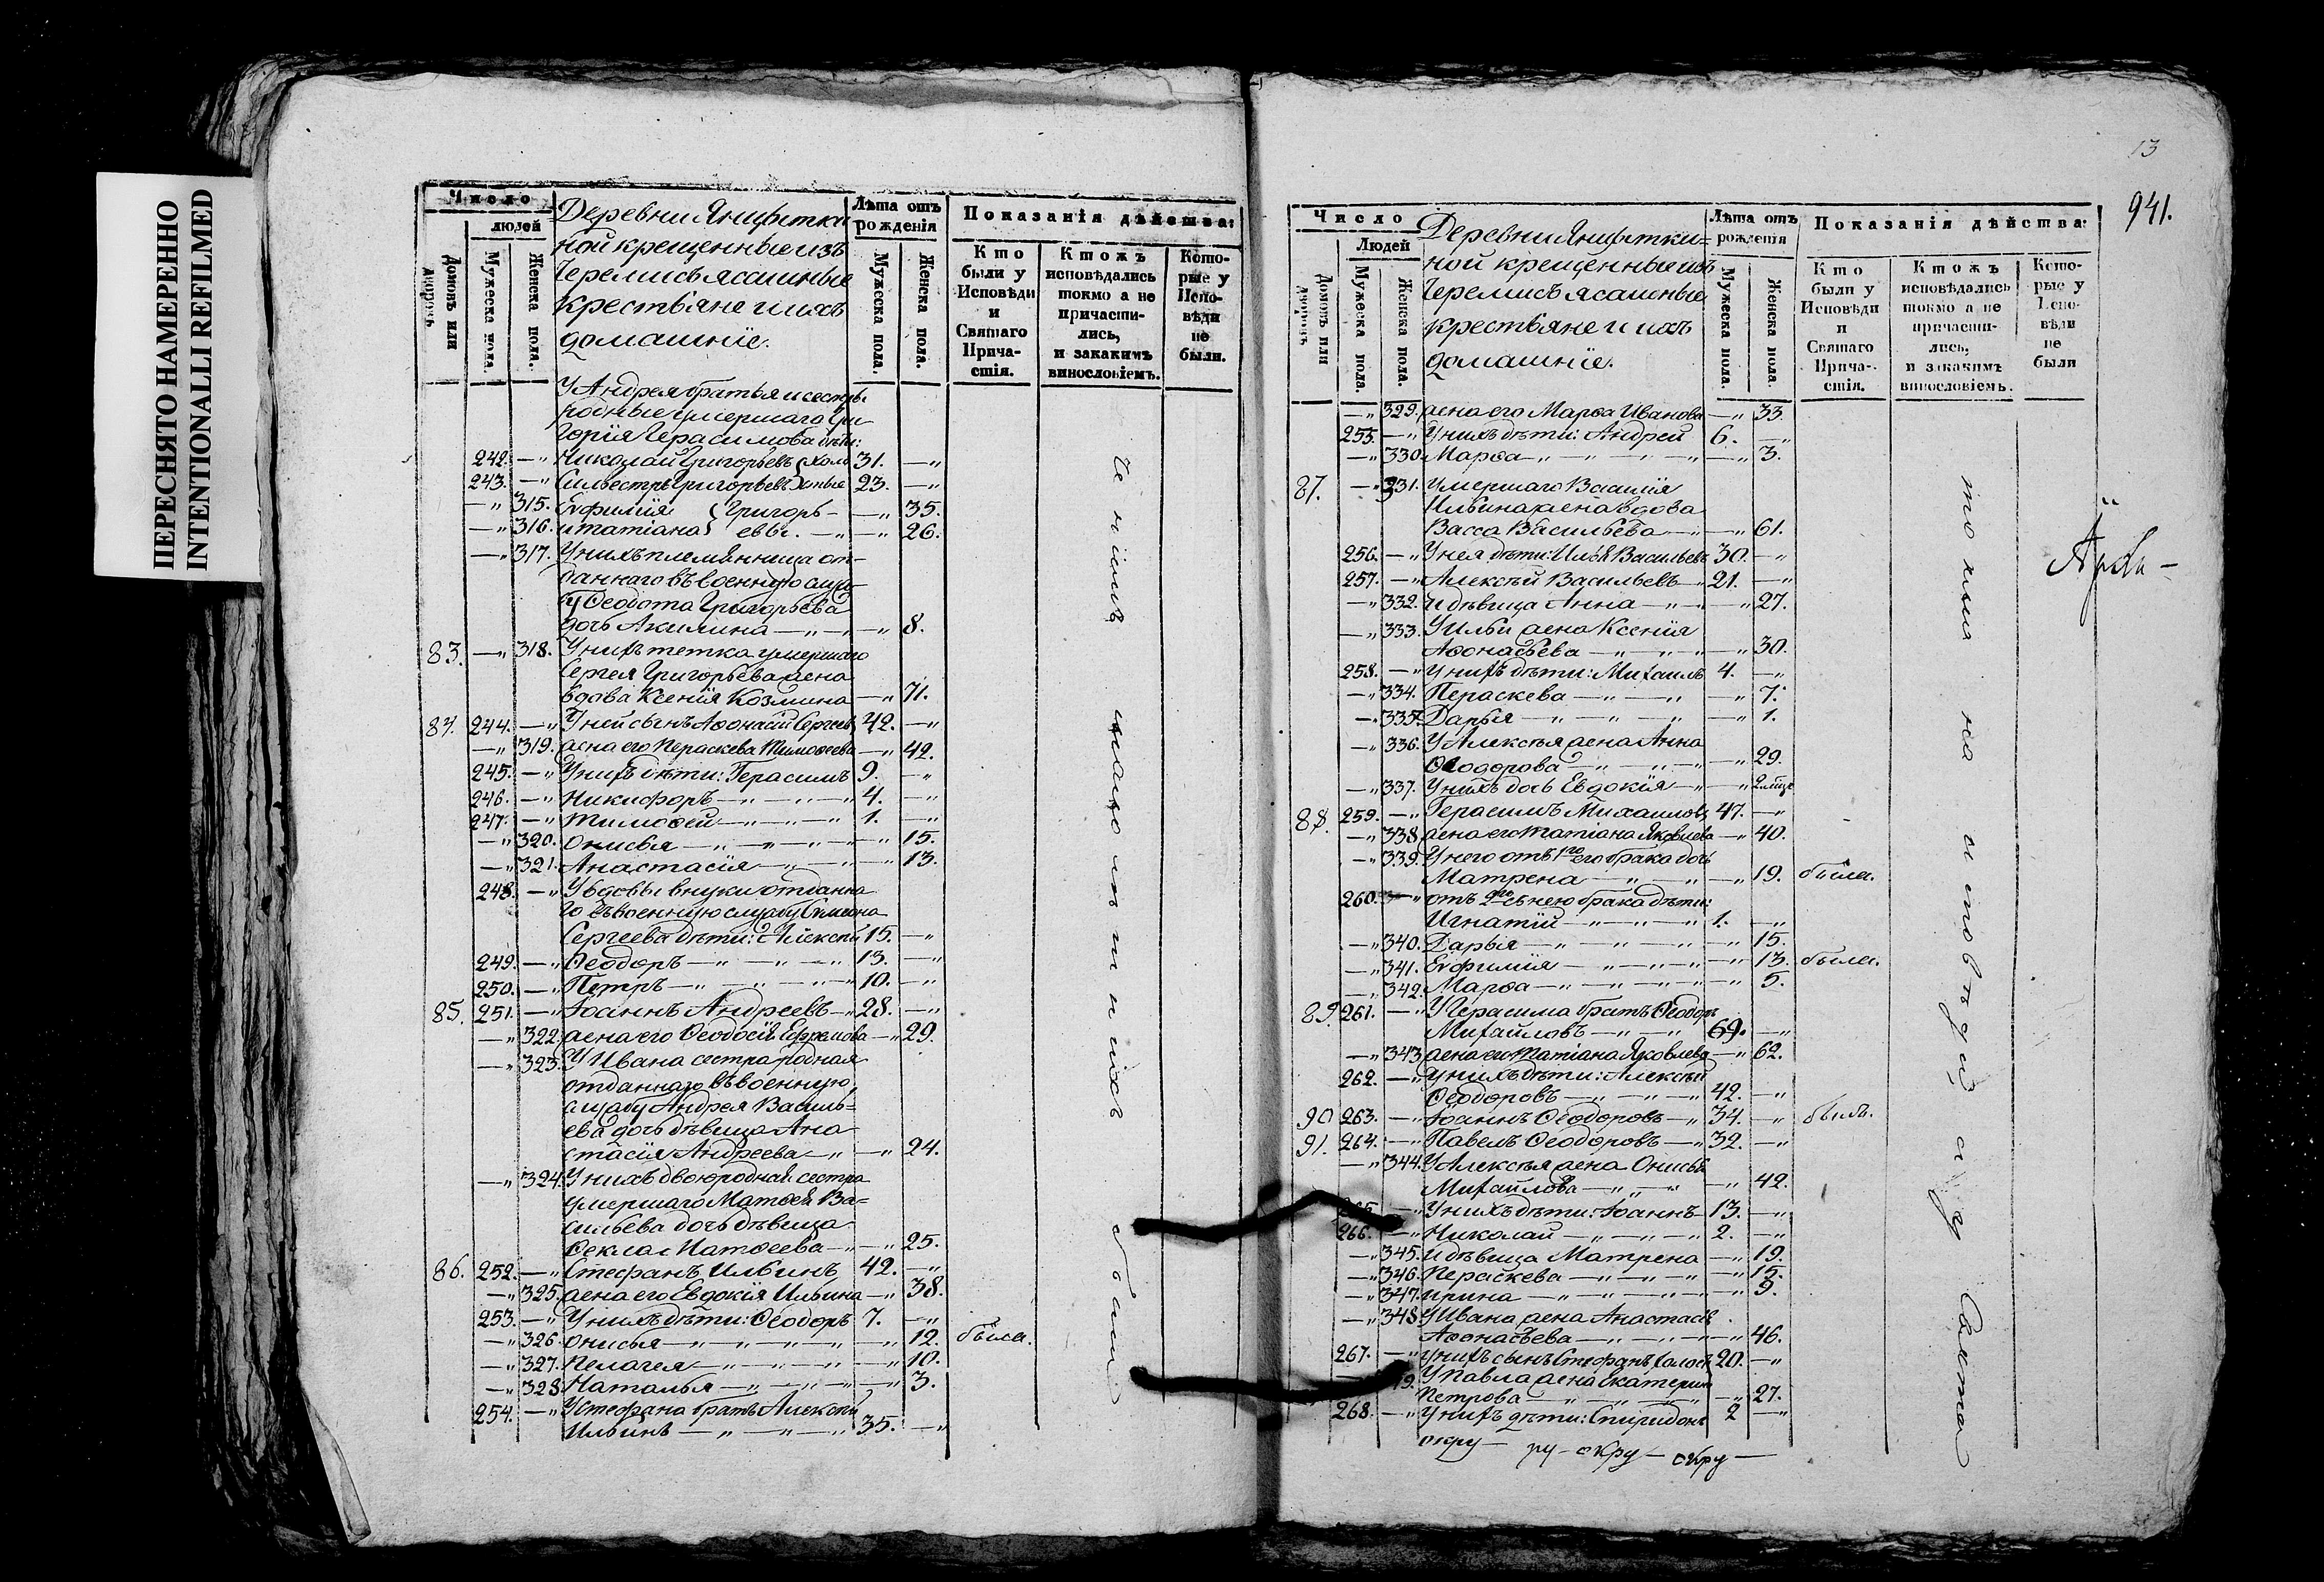 ПЕРЕСНЯТО НАМЕРЕННО
INTENTIONALLI REFILMED
Число
людей
Домовъ или дворовъ
Мужеска пола.
Женска пола.
Деревни
ной крещенные изъ
Черемисъ ясашные
крестьяне и ихъ
домашнїе.
Лѣта отъ рожденія
Мужеска пола.
Женска пола.
Показанія дѣйства:
Кто были у Исповѣди и Святаго Прича-стія.
Ктожъ исповѣдались токмо а не причасти-лись, и закакимъ винословіемъ.
Кото-рые у Испо-вѣди не были.
У Андрея братья и сестры
родные умершаго Гри
горїя Герасимова дѣти:
242. —„ Николай Григорьевъ холо 31. —„
243. —„ Сильвестръ Григорьевъ стые 23. —„
—„ 315. Евфимїя Григорь- —„ 35.
—„ 316. и татїана евы. —„ —„ 26.
—„ 317. У нихъ племянница от-
даннаго въ военную служ-
бу Ѳеодота Григорьева
дочь Акилина —„— —„ 8.
83. —„ 318. У нихъ тетка умершаго
Сергея Григорьева жена
вдова Ксенїя Козмина —„ 71.
84. 244. —„ У ней сынъ Аѳонасїй Сергеевъ 42. —„
—„ 319. жена его Параскева Тимоѳеева —„ 42.
245. —„ У нихъ дѣти: Герасимъ 9. —„
246. —„ Никифоръ —„ —„ —„ 4. —„
247. —„ Тимоѳей —„ —„ —„ 1. —„
—„ 320. Онисья —„ —„ —„ —„ 15.
—„ 321. Анастасїя —„ —„ —„ 13.
248. —„ У вдовы внуки отданна
го въ военную службу Симеона
Сергеева дѣти: Алексѣй 15. —„
249. —„ Ѳеодоръ —„ —„ —„ 13. —„
250. —„ Петръ —„ —„ —„ 10. —„
85. 251. —„ Іоаннъ Андреевъ —„ 28. —„
—„ 322. жена его Ѳеодосїя Ефремова —„ 29.
—„ 323. У Ивана сестра родная
отданнаго въ военную
службу Андрея Василь=
ева дочь дѣвица Ана
стасїя Андреева —„ —„ 24.
—„ 324. У нихъ двоюродная сестра
умершаго Матѳея Ва=
сильева дочь дѣвица
Ѳекла Матѳеева —„ —„ 25.
86. 252. —„ Стефанъ Ильинъ 42. —„
—„ 325. жена его Евдокїя Ильина —„ 38.
253. —„ У нихъ дѣти: Ѳеодоръ 7. —„
—„ 326. Онисья —„ —„ —„ —„ 12. была.
—„ 327. Пелагея —„ —„ —„ —„ 10.
—„ 328. Наталья —„ —„ —„ —„ 3.
254. —„ У Стефана братъ Алексѣй
Ильинъ —„ —„ —„ 35. —„
13
941.
Число
Людей
Домовъ или дворовъ
Мужеска пола.
Женска пола.
Деревни
ной крещенные изъ
Черемисъ ясашные
крестьяне и ихъ
домашнїе.
Лѣта отъ рожденія
Мужеска пола.
Женска пола.
Показанія дѣйства:
Кто были у Исповѣди и Святаго Прича-стія.
Ктожъ исповѣдались токмо а не причасти-лись, и закакимъ винословіемъ.
Кото-рые у Испо-вѣди не были
—„ 329. жена его Марѳа Иванова —„ 33.
255. —„ У нихъ дѣти: Андрей 6. —„
—„ 330. Марѳа —„ —„ —„ —„ —„ 3.
87. —„ 331. умершаго Василїя
Ильина жена вдова
Васса Васильева —„ —„ 61.
256. —„ У нея дѣти: Илья Васильевъ 30. —„
257. —„ Алексѣй Васильевъ —„ 21. —„
—„ 332. и дѣвица Анна —„ —„ —„ 27.
—„ 333. У Ильи жена Ксенїя
Аѳонасьева —„ —„ —„ —„ 30.
258. —„ У нихъ дѣти: Михаилъ 4. —„
—„ 334. Параскева —„ —„ —„ 7.
—„ 335. Дарья —„ —„ —„ —„ 1.
—„ 336. У Алексѣя жена Анна
Ѳеодорова —„ —„ —„ 29.
—„ 337. У нихъ дочь Евдокїя —„ —„
88. 259. —„ Герасимъ Михаиловъ 47. —„
—„ 338. жена его татїана Яковлева —„ 40.
—„ 339. У него отъ 1го его брака дочь
Матрена —„ —„ —„ 19. была.
260. —„ отъ 2го съ нею брака дѣти:
Игнатїй —„ —„ —„ 1. —„
—„ 340. Дарья —„ —„ —„ —„ 15.
—„ 341. Евфимїя —„ —„ —„ —„ 13. была.
—„ 342. Марѳа —„ —„ —„ —„ 5.
89. 261. —„ У Герасима братъ Ѳеодоръ
Михайловъ —„ —„ 69. —„
—„ 343. жена его татїана Яковлева —„ 62.
262. —„ У нихъ дѣти: Алексѣй
Ѳеодоровъ —„ —„ —„ 42. —„
90 263. —„ Іоаннъ Ѳеодоровъ —„ 34. —„ былъ.
91. 264. —„ Павелъ Ѳеодоровъ —„ 32. —„
—„ 344. У Алексѣя жена Онисья
Михайлова —„ —„ —„ 42.
—„ У нихъ дѣти: Іоаннъ 13. —„
266. —„ Николай —„ —„ —„ 2. —„
—„ 345. и дѣвица Матрена —„ 19.
—„ 346. Параскева —„ —„ —„ —„ 15.
—„ 347. Ирина —„ —„ —„ —„ 9.
—„ 348. У Ивана жена Анастасїя
Аѳонасьева —„ —„ —„ 46.
267. —„ У нихъ сынъ Стефанъ холостъ 20. —„
У Павла жена Екатерина
Петрова —„ —„ —„ 27.
268. —„ У нихъ дѣти: Спиридонъ 2 —„
окру — ру — окру — окру —